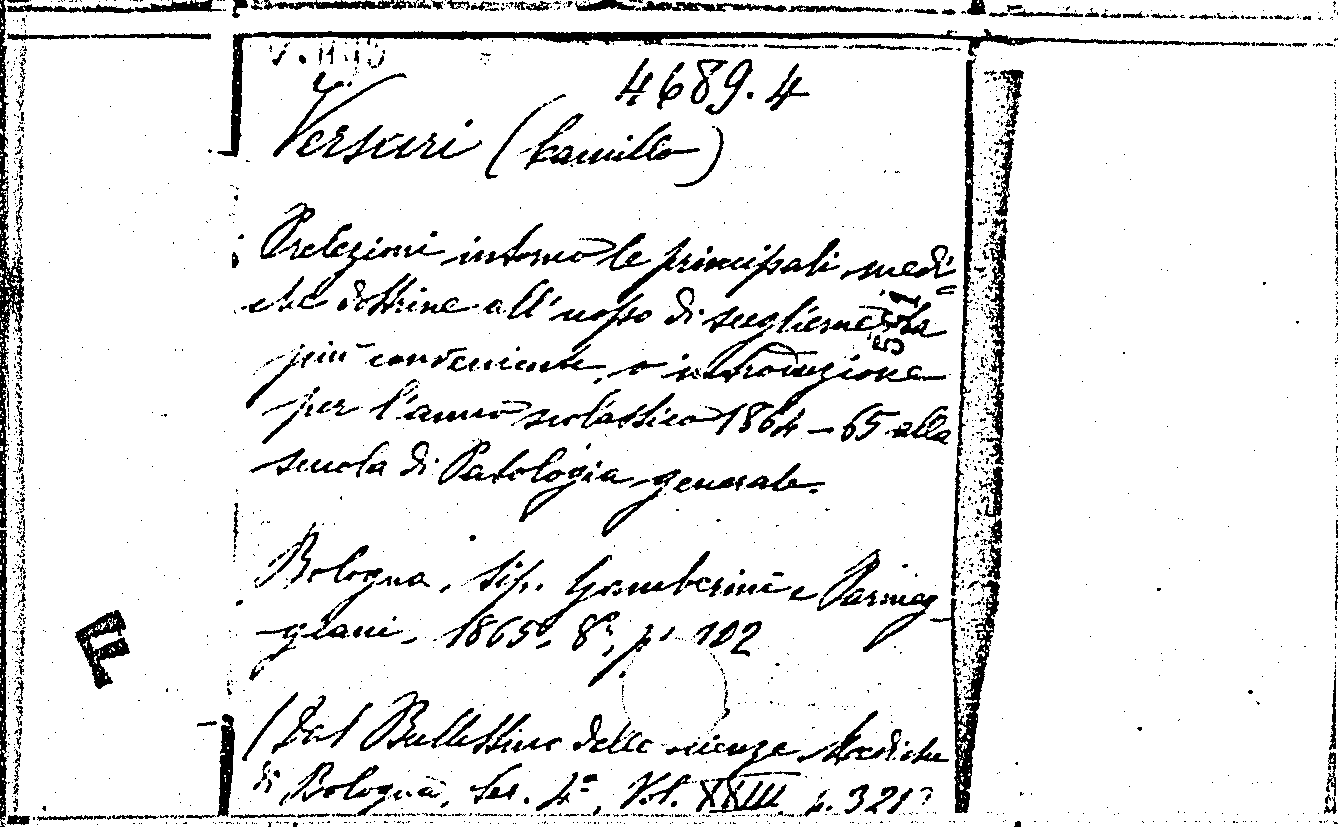 4689.4
Versari (Camillo)
Prelezioni intorno le principali medi=
che dottrine all'uopo di sceglierne la
più conveniente, o introduzione
per l'anno scolastico 1864-65 alla
scuola di Patologia generale.
Bologna, tip. Gamberini e Parmeg-
giani, 1865, 8º, p. 102
(Dal Bullettino delle scienze Mediche
di Bologna, Ser. 4ª, Vol. XXIII, p. 321)